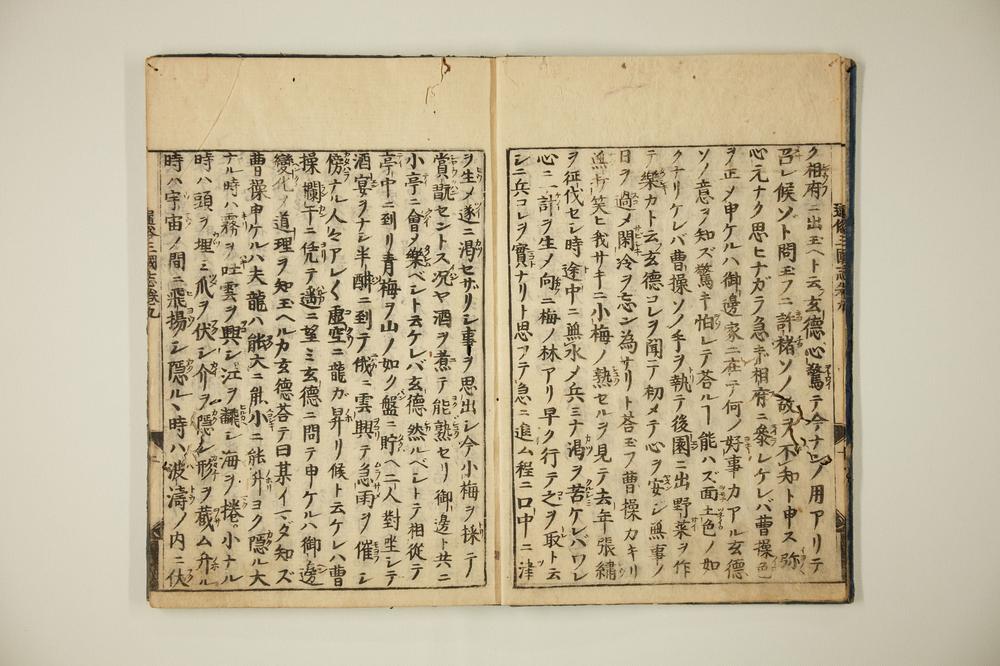 ク相府ニ出玉ヘト云玄德心驚テ今ナニノ用アリテ
召レ候ゾト問玉フニ許褚ソノ故ヲ不知ト申ス弥
心元ナク思ヒナガラ急ギ相府ニ參レケレバ曹操色
ヲ正メ申ケルハ御邊家ニ在テ何ノ好事カアル玄德
ソノ意ヲ知ズ驚キ怕レテ荅ルヿ能ハズ面土色ノ如
クナリケレバ曹操ソノ手ヲ執テ後園ニ出野菜ヲ作
テ樂カト云玄德コレヲ聞テ初メテ心ヲ安シ無事ノ
日ヲ過メ閑冷ヲ忘ン為サリト荅玉フ曹操カキリ
無ク笑ヒ我サキニ小梅ノ熟セルヲ見テ去年張繡
ヲ征伐セシ時途中ニ無水メ兵ミナ渇ヲ苦ケレバワレ
心ニ一計ヲ生メ向ニ梅ノ林アリ早ク行テ之ヲ取ト云
シニ兵コレヲ實ナリト思フテ急ニ進ム程ニ口中ニ津
ヲ生メ遂ニ渇セザリシ事ヲ思出シ今小梅ヲ採テノ
賞翫セントス况ヤ酒ヲ煮テ能熟セリ御邊ト共ニ
小亭ニ會メ樂ベント云ケレバ玄德然ルベントテ相從テ
亭中ニ到リ青梅ヲ山ノ如ク盤ニ貯ヘ二人對坐シテ
酒宴ヲナシ半酣ニ到テ俄ニ雲興テ急雨ヲ催シ
傍ナル人々アレ〱虚空ニ龍カ昇リ候ト云ケレハ曹
操欄干ニ凭テ遥ニ望ミ玄德ニ問テ申ケルハ御邊
變化ノ道理ヲ知玉ヘルカ玄德荅テ曰某イマダ知ズ
曹操申ケルハ夫龍ハ能大ニ能小ニ能升ヨク隠ル大
ナル時ハ霧ヲ吐雲ヲ興シ江ヲ飜シ海ヲ捲ク小ナル
時ハ頭ヲ埋ミ爪ヲ伏シ介ヲ隠シ形ヲ藏ム升ル
時ハ宇宙ノ間ニ飛揚シ隠ル丶時ハ波濤ノ内ニ伏
通俗三國志卷九